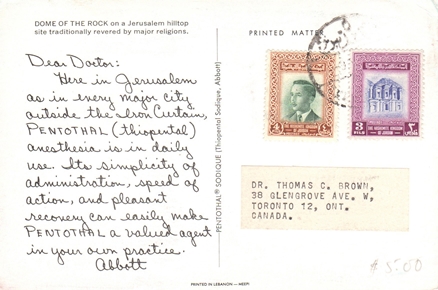 DOME OF THE ROCK on a Jerusalem hilltop
site traditionally revered by major religions.
Dear Doctor:
Here in Jerusalem
as in every major city
outside the Iron Curtain,
PENTOTHAL (thiopental)
anesthesia is in daily
use. Its simplicity of
administration, speed of
action, and pleasant
recovery can easily make
PENTOTHAL a valued agent
in your own practice.
Abbott
PENTOTHAL® SODIQUE (Thiopental Sodique, Abbott)
PRINTED MATTER
THE HASHEMITE KINGDOM
OF JORDAN
THE HASHEMITE KINGDOM
OF JORDAN
3
FILS
DR. THOMAS C. BROWN,
38 GLENGROVE AVE. W,
TORONTO 12, ONT.
CANADA.
$5.00
PRINTED IN LEBANON — MEEPI